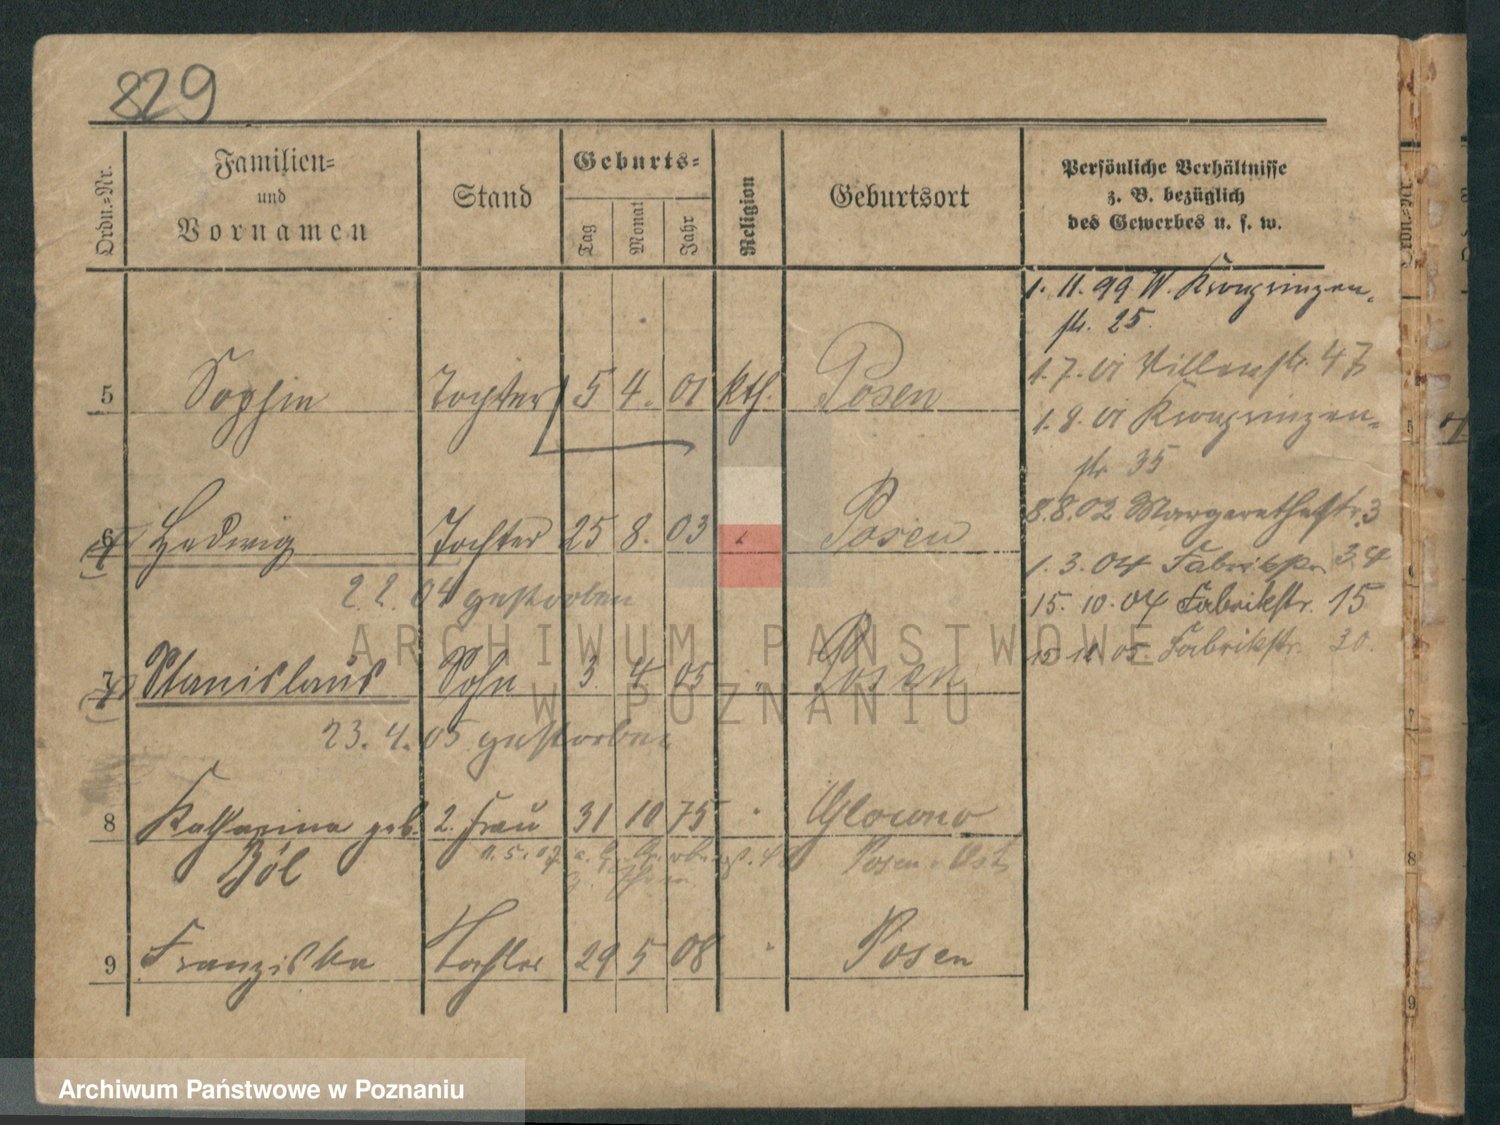 829
Ordn.=Nr.
Familien=
und
Vornamen
Stand
Geburts=
Tag
Monat
Jahr
Religion
Geburtsort
Persönliche Verhältnisse
z. B. bezüglich
des Gewerbes u. s. w.
1. 11. 99 W. Kronprinzen-
str. 25.
5 Sophie Tochter 5 4. 01 kth. Posen
1. 7. 01 Villenstr. 47
1. 8. 01 Kronprinzen-
str 35
6 Hedwig Tochter 25 8. 03 Posen
8. 8. 02 Margarethestr. 3
1. 3. 04 Fabrikstr. 34
2. 2. 04 gestorben
15. 10. 04 Fabrikstr. 15
7 Stanislaus Sohn 3. 4 05 " Posen
Fabrikstr. 30.
23. 4. 05 gestorben
8 Katharina geb. 2. Frau 31 10 75 Glowno
Posen-Ost
9 Franziska Tochter 29 5 08 Posen
ARCHIWUM PAŃSTWOWE
W POZNANIU
5
8
9
Archiwum Państwowe w Poznaniu